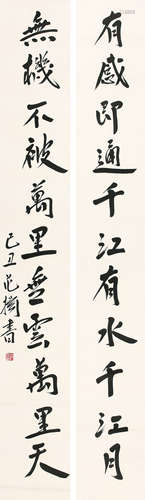 有感即通千江有水千江月
無機不被萬里無雲萬里天
己丑范
書